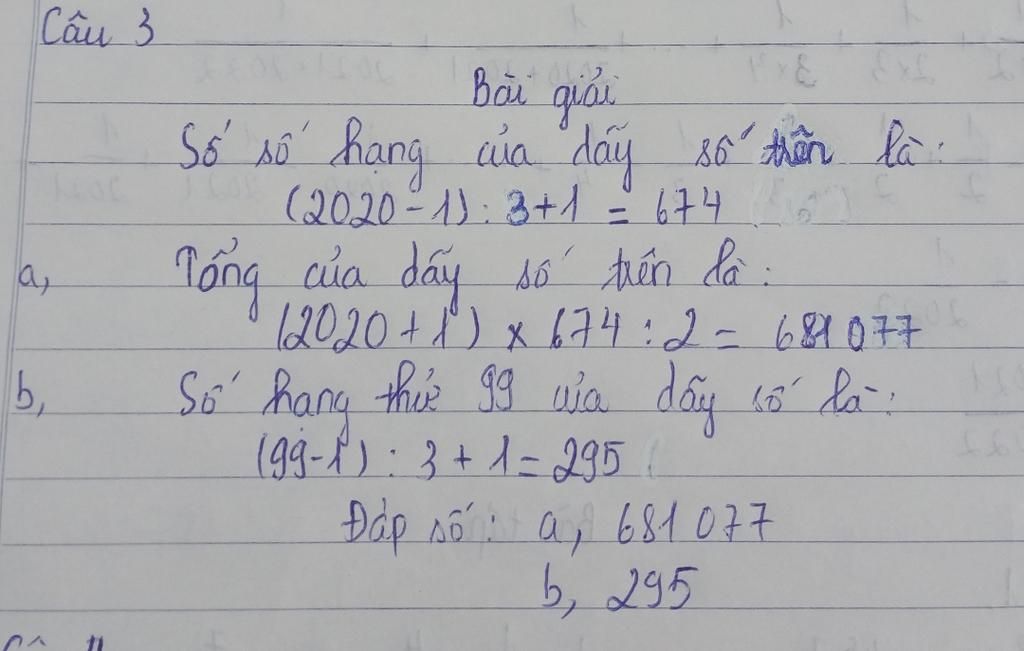 Câu 3
Bài giải
Số số hạng của dãy số trên là:
(2020-1) : 3+1 = 674
a, Tổng của dãy số trên là:
(2020+1) x 674 : 2 = 681 077
b, Số hạng thứ 99 của dãy số là:
(99-1) : 3 + 1 = 295
Đáp số: a, 681 077
b, 295